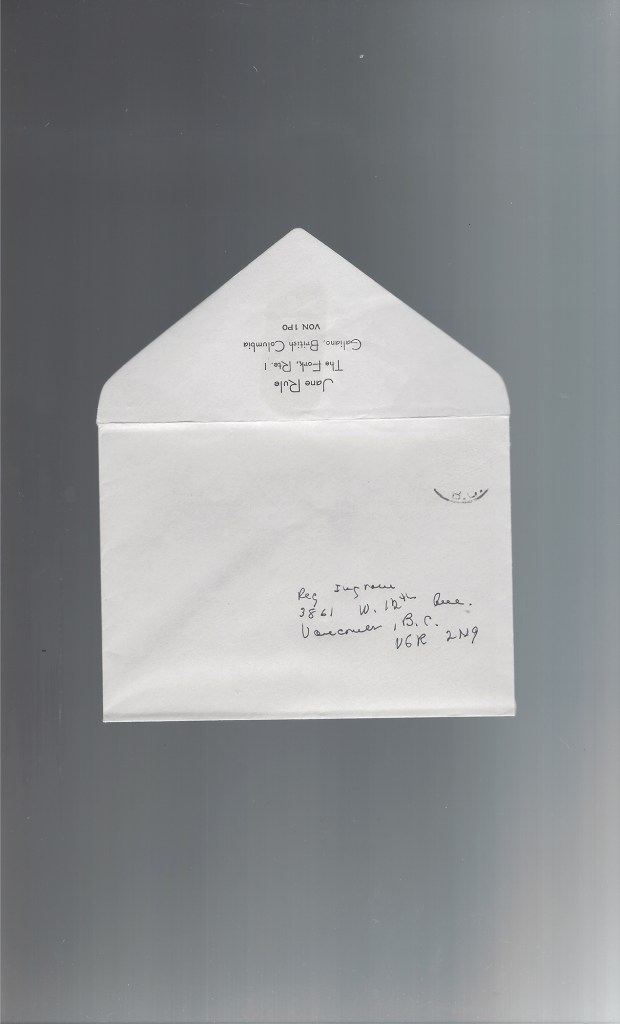 Jane Rule
The Fork, Rte. 1
Galiano, British Columbia
VON 1PO
B.C.
Reg Ingram
3861 W. 12th Ave.
Vancouver, B.C.
V6R 2N9